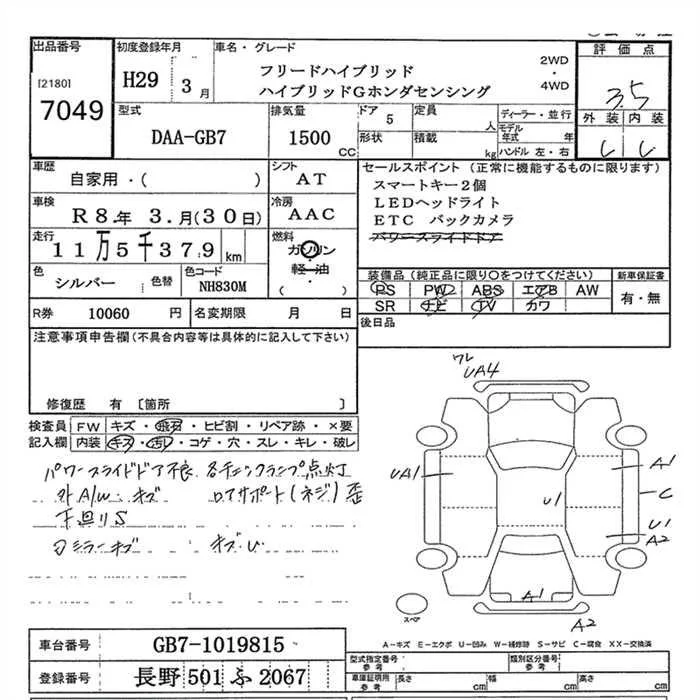 出品番号
[2180]
7049
初度登録年月
H29 3月
車名・グレード
フリードハイブリッド
ハイブリッドGホンダセンシング
2WD
・
4WD
評価点
3.5
外装 内装
型式
DAA-GB7
排気量
1500 CC
ドア
5
形状
定員
人
積載
kg
ディーラー・並行
モデル年式 年
ハンドル 左・右
車歴
自家用・( )
シフト
AT
車検
R8.年 3.月(30日)
冷房
AAC
走行
11万5千379 km
燃料
ガソリン
・
軽油
・
( )
色
シルバー
色替
色コード
NH830M
R券 10060 円
名変期限 月 日
セールスポイント (正常に機能するものに限ります)
スマートキー2個
LEDヘッドライト
ETC バックカメラ
パワースライドドア
装備品(純正品に限り○をつけてください)
新車保証書
PS PW ABS エアB AW
SR ナビ TV カワ
有・無
後日品
注意事項申告欄(不具合内容等は具体的に記入して下さい)
修復歴 有 〔箇所 〕
検査員記入欄
FW キズ・飛石・ヒビ割・リペア跡・×要
内装 キズ・汚れ・コゲ・穴・スレ・キレ・破レ
パワースライドドア不良 各チェックランプ点灯
外A/W キズ ロアサポート(ネジ)歪
下廻りS
ワレ
UA4
UA1
A1
C
U1
U1
A2
A1
A2
スペア
A-キズ E-エクボ U-凹み W-補修跡 S-サビ C-腐食 XX-交換済
車台番号 GB7-1019815
登録番号 長野 501 ふ 2067
型式指定番号 参考
類別区分番号 参考
車庫証明用 参考
長さ cm
幅 cm
高さ cm